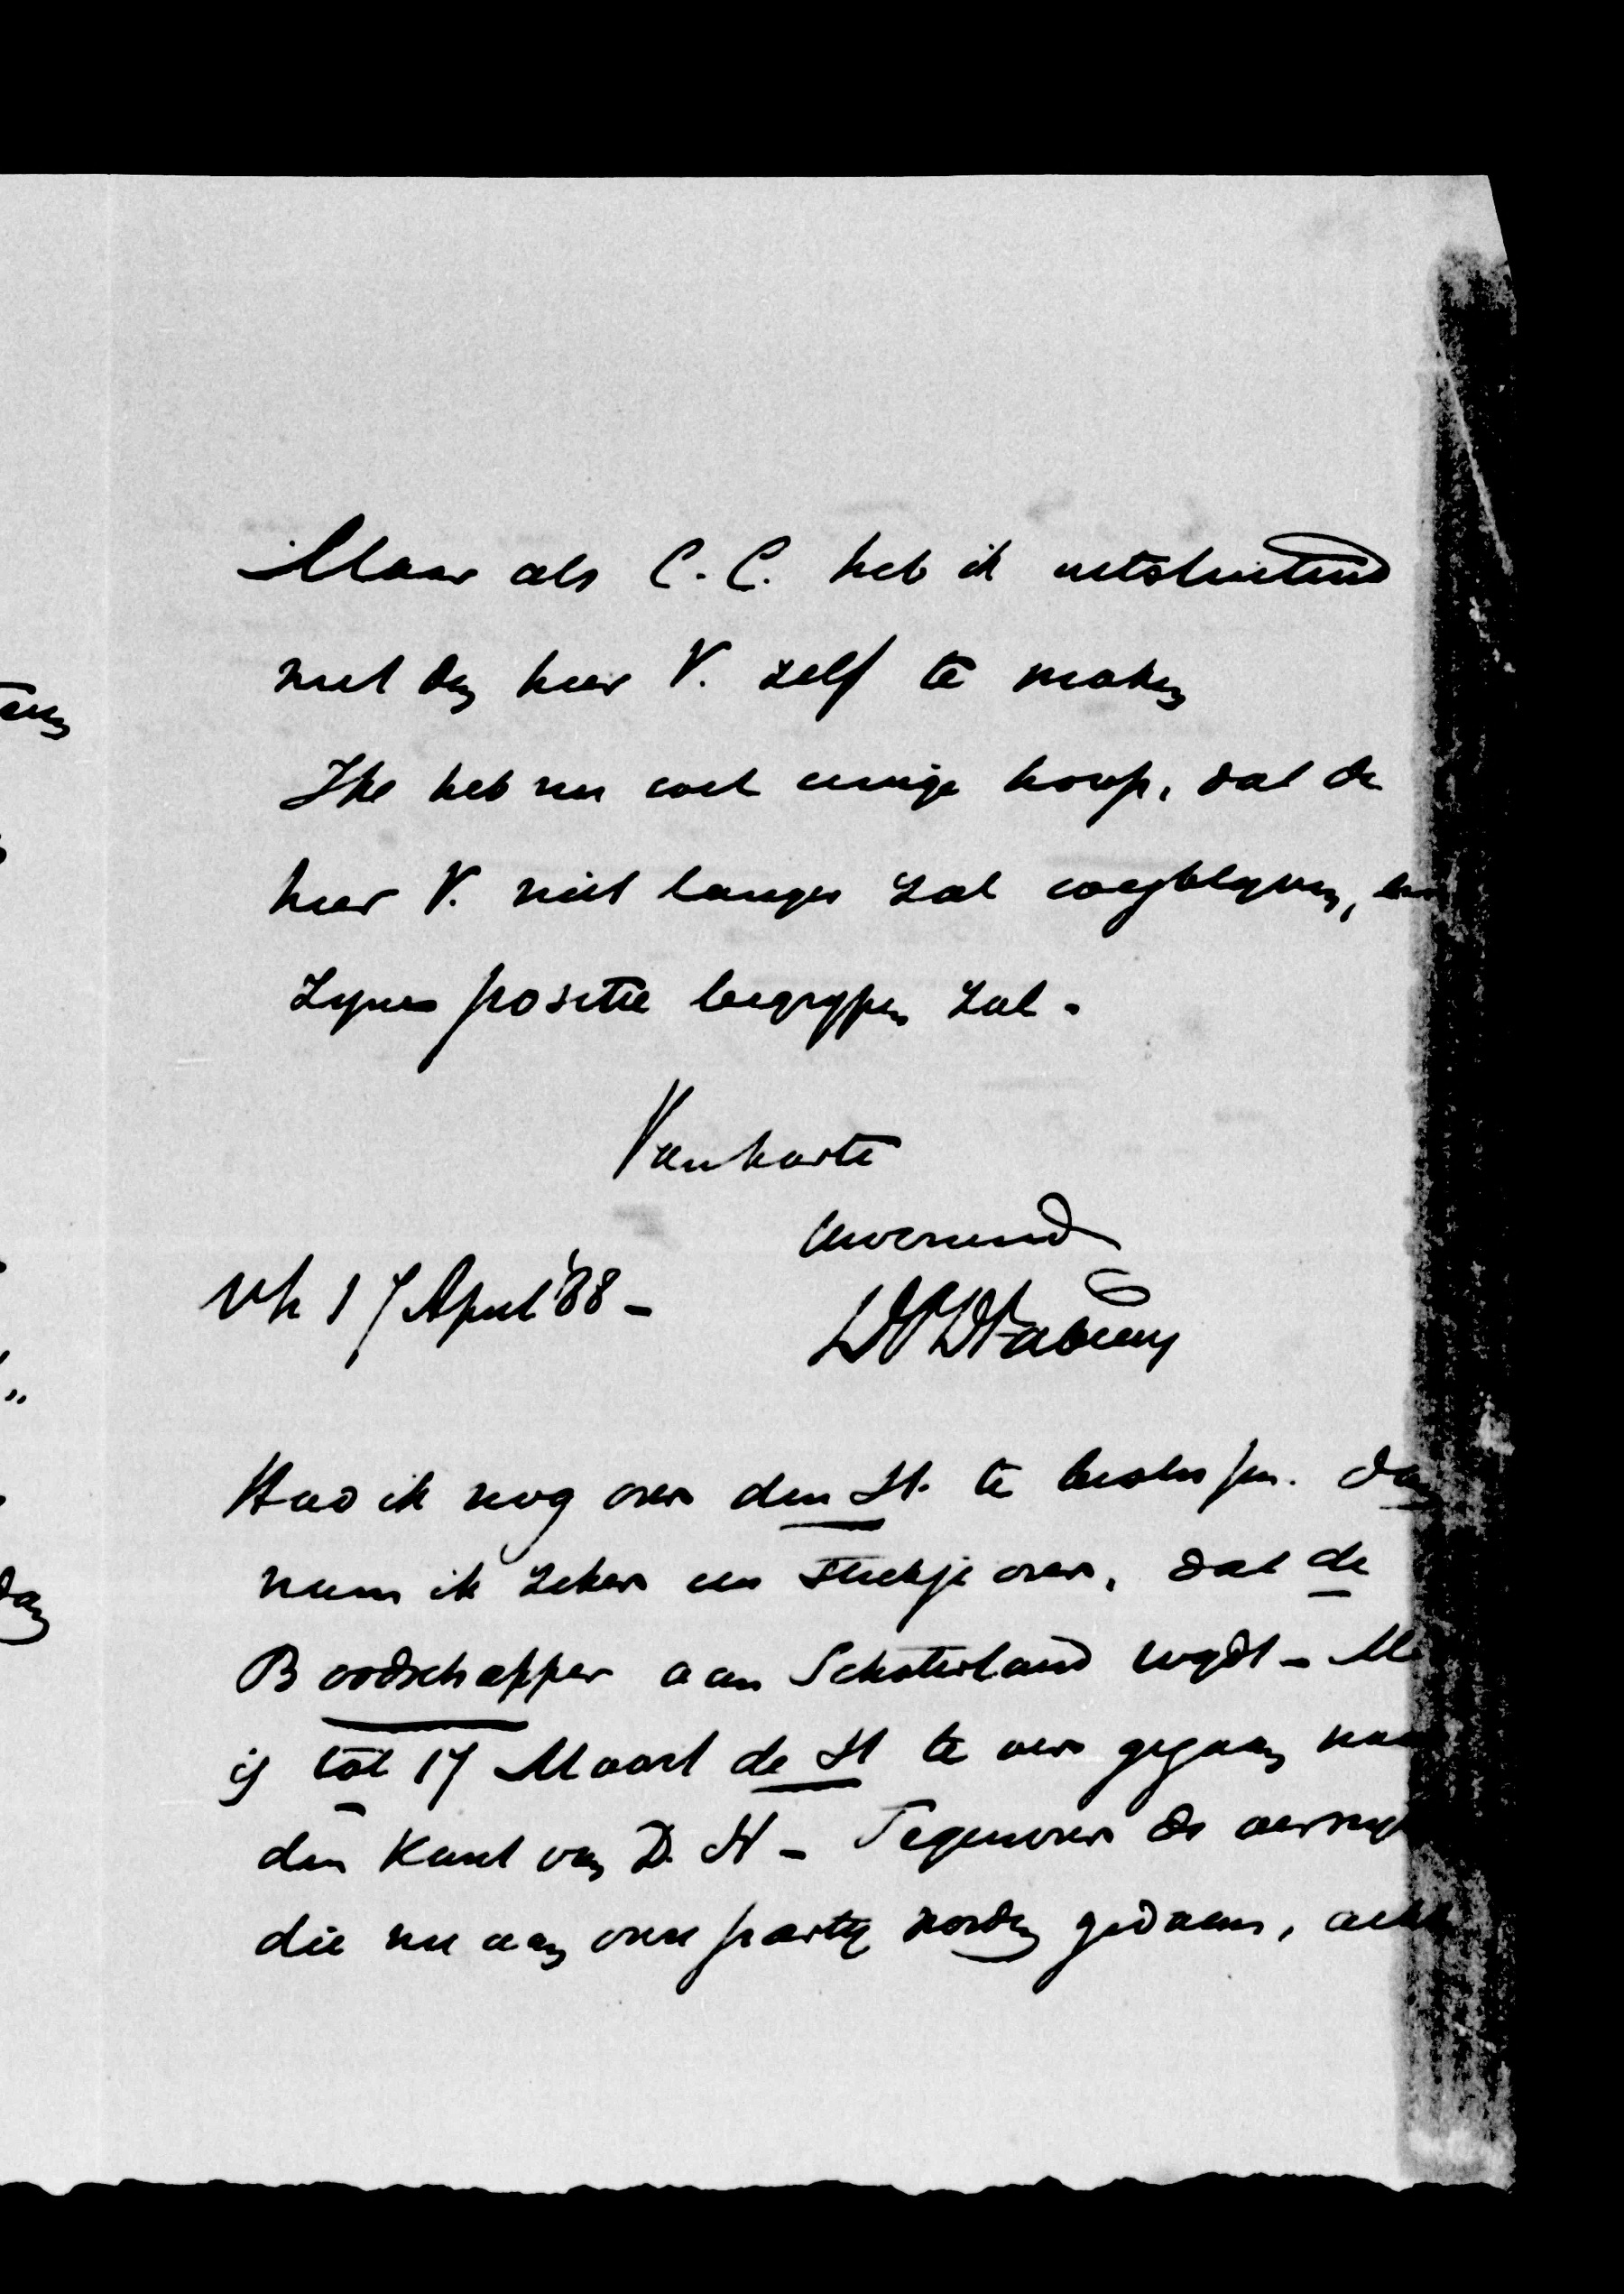 Maar als C.C. heb ik uitsluitend
met den heer V. zelf te maken
Ik heb nu wel eenige hoop, dat de
heer V. niet langer zal wegblijven, en
zijne positie begrijpen zal.
Van harte
uw vriend
DPDFabius
Uh 17 April '88 -
Had ik nog over den St. te beslissen. dan
nam ik zeker een stukje over, dat de
Boodschapper aan Schoterland wijdt - Me
is tot 17 Maart de St te ver gegaan naar
den kant van D. H - Tegenover de
die nu aan onze partij worden gedaan,